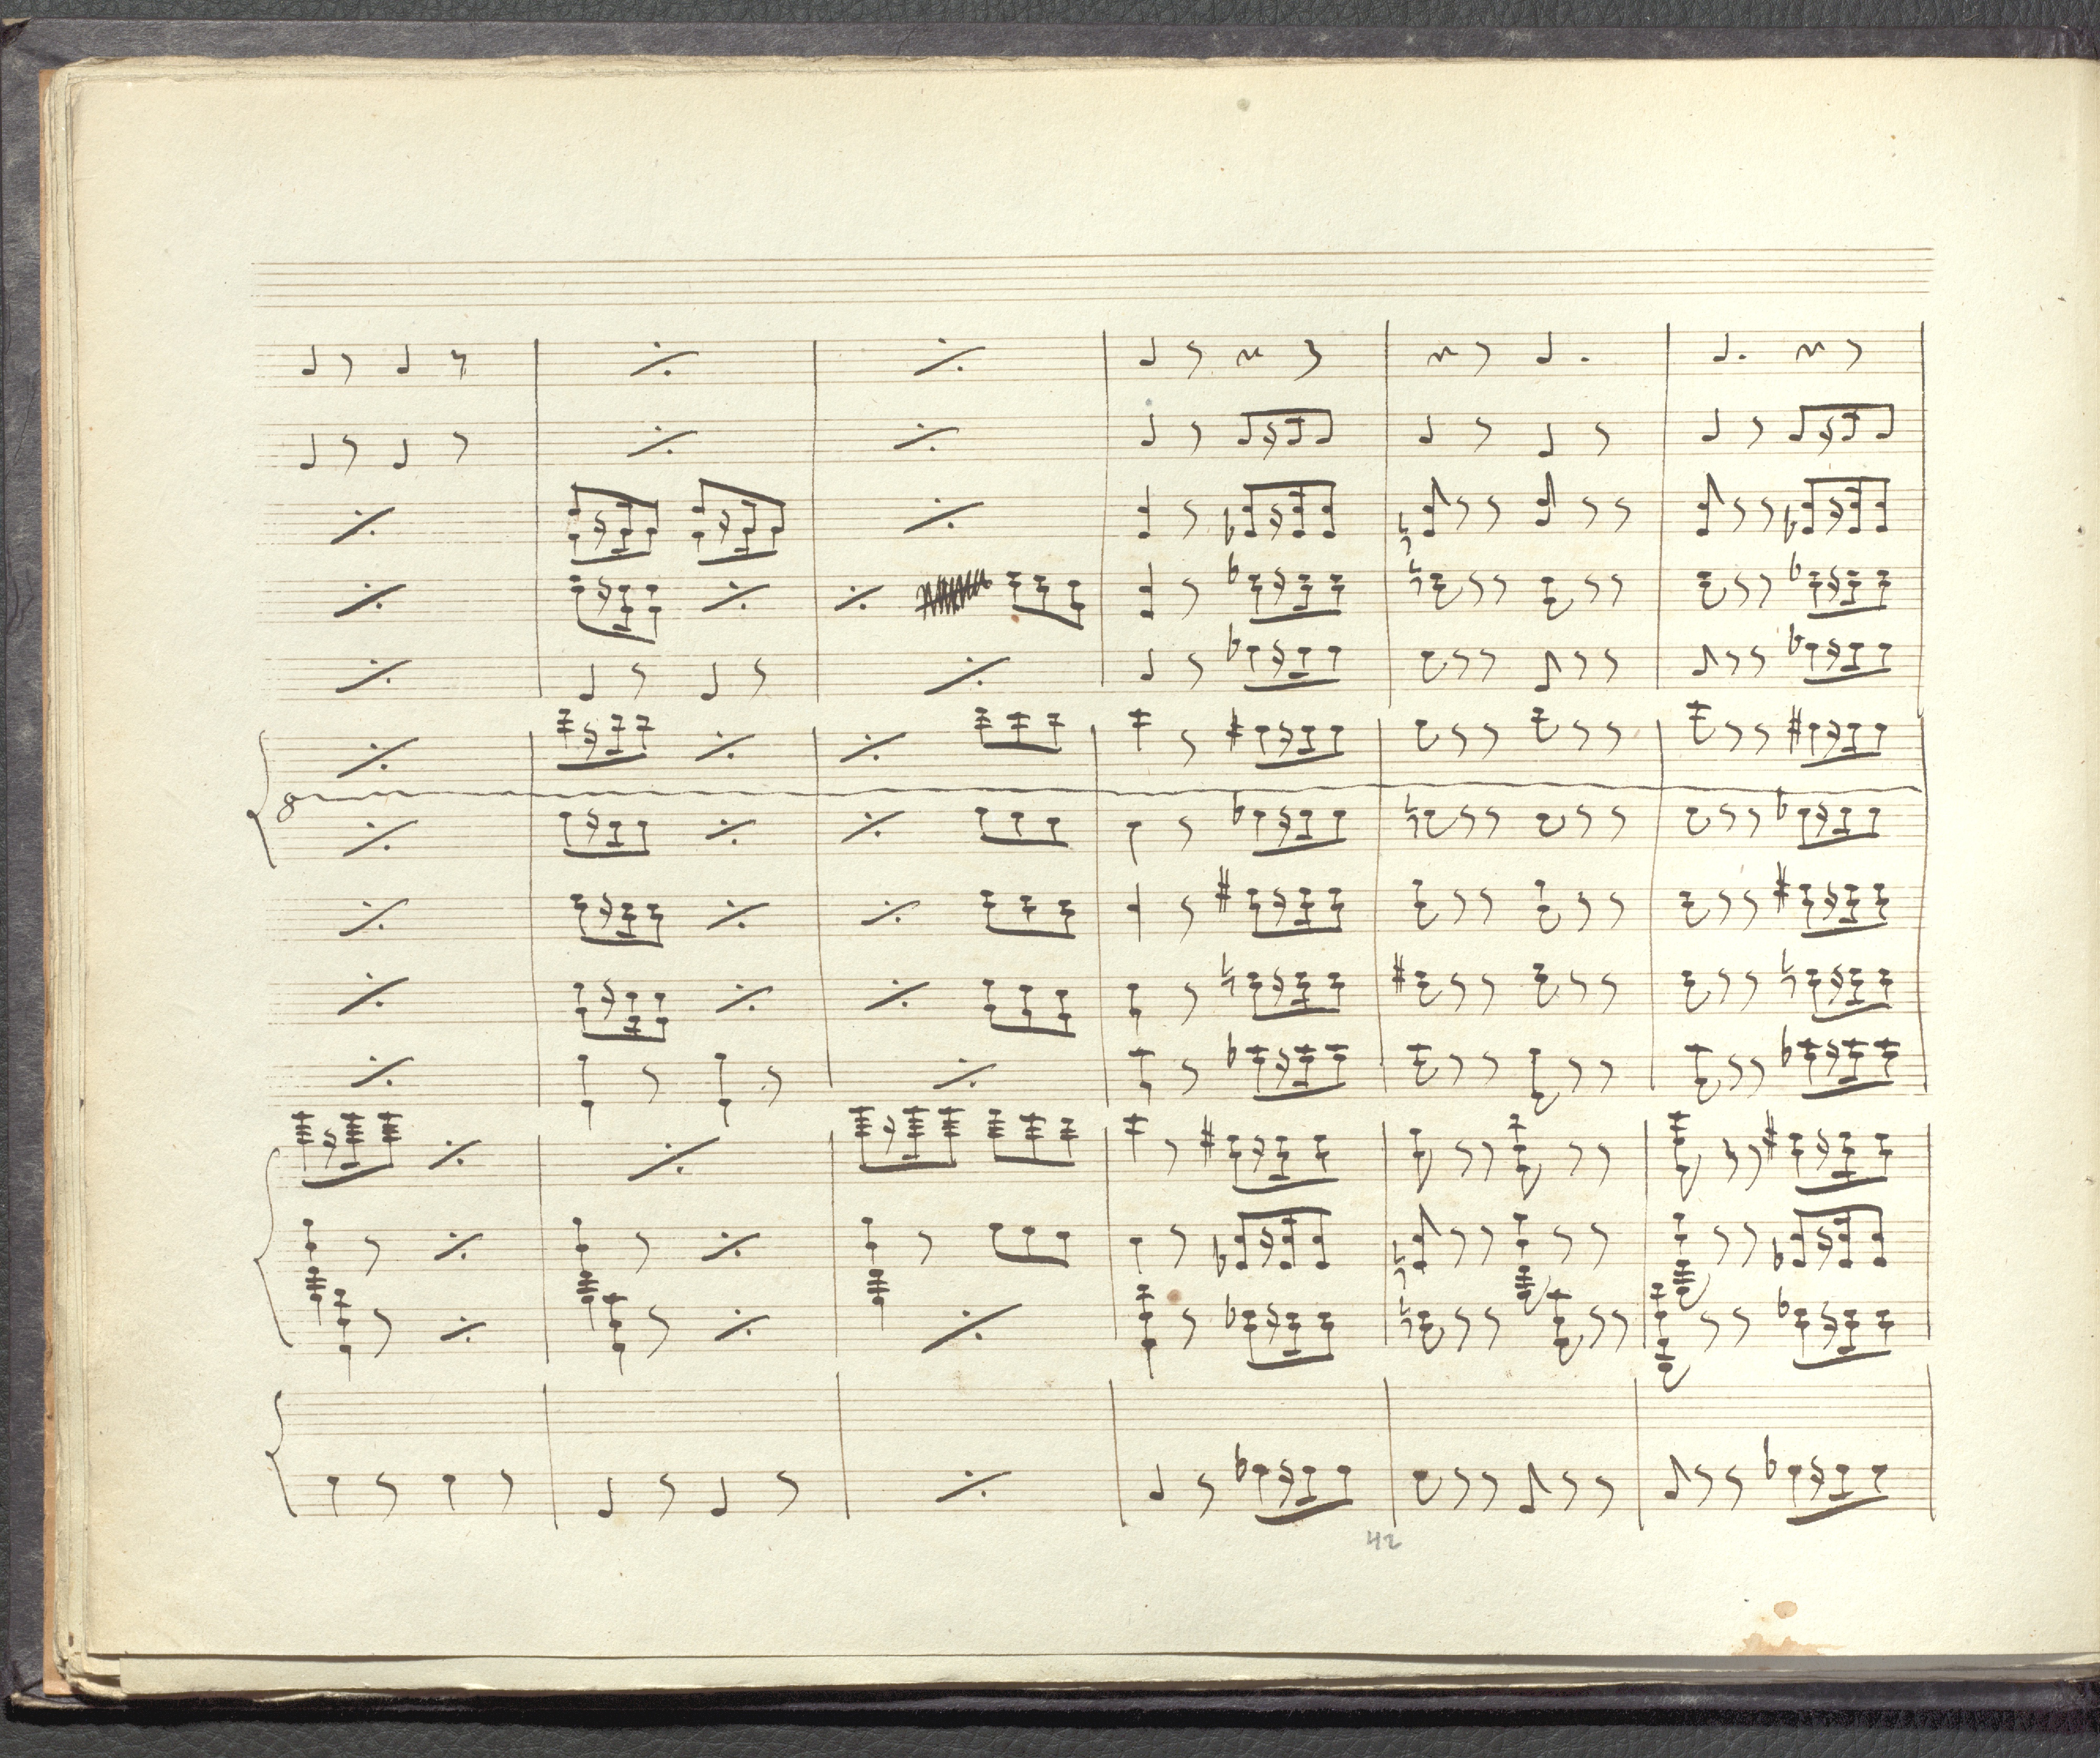 8
42